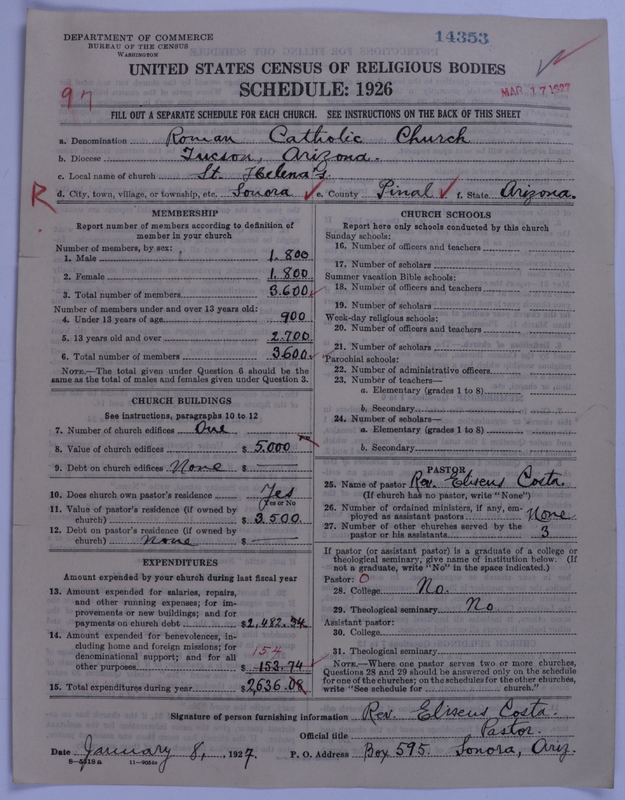 DEPARTMENT OF COMMERCE
BUREAU OF THE CENSUS
WASHINGTON
14353
UNITED STATES CENSUS OF RELIGIOUS BODIES
SCHEDULE: 1926
MAR 17 1927
97
FILL OUT A SEPARATE SCHEDULE FOR EACH CHURCH. SEE INSTRUCTIONS ON THE BACK OF THIS SHEET
a. Denomination Roman Catholic Church
b. Diocese Tucson, Arizona.
c. Local name of church St. Helena's
R
d. City, town, village, or township, etc. Sonora e. County Pinal f. State Arizona.
MEMBERSHIP
Report number of members according to definition of member in your church
Number of members, by sex:
1. Male 1.800
2. Female 1.800
3. Total number of members 3.600
Number of members under and over 13 years old:
4. Under 13 years of age 900
5. 13 years old and over 2.700
6. Total number of members 3600
NOTE.—The total given under Question 6 should be the
same as the total of males and females given under Question 3.
CHURCH BUILDINGS
See instructions, paragraphs 10 to 12
7. Number of church edifices One
8. Value of church edifices $ 5.000
9. Debt on church edifices None $
10. Does church own pastor's residence Yes
Yes or No
11. Value of pastor's residence (if owned by
church) $ 3.500.
12. Debt on pastor's residence (if owned by
church) None $
EXPENDITURES
Amount expended by your church during last fiscal year
13. Amount expended for salaries, repairs,
and other running expenses; for im-
provements or new buildings; and for
payments on church debt $2,482.34
14. Amount expended for benevolences, in-
cluding home and foreign missions; for
denominational support; and for all
154
other purposes $ 153.74
15. Total expenditures during year $2636.08
CHURCH SCHOOLS
Report here only schools conducted by this church
Sunday schools:
16. Number of officers and teachers
17. Number of scholars
Summer vacation Bible schools:
18. Number of officers and teachers
19. Number of scholars
Week-day religious schools:
20. Number of officers and teachers
21. Number of scholars
Parochial schools:
22. Number of administrative officers
23. Number of teachers—
a. Elementary (grades 1 to 8)
b. Secondary
24. Number of scholars—
a. Elementary (grades 1 to 8)
b. Secondary
PASTOR
25. Name of pastor Rev. Eliseus Costa.
(If church has no pastor, write "None")
26. Number of ordained ministers, if any, em-
ployed as assistant pastors None
27. Number of other churches served by the
pastor or his assistants 3
If pastor (or assistant pastor) is a graduate of a college or
theological seminary, give name of institution below. (If
not a graduate, write "No" in the space indicated.)
Pastor: O
28. College No.
29. Theological seminary No
Assistant pastor:
30. College
31. Theological seminary
NOTE.—Where one pastor serves two or more churches,
Questions 28 and 29 should be answered only on the schedule
for one of the churches; on the schedules for the other churches,
write "See schedule for church."
Signature of person furnishing information Rev. Eliseus Costa.
Official title Pastor.
Date January 8, 1927. P. O. Address Box 595. Sonora, Ariz.
8-5318a 11-9058a